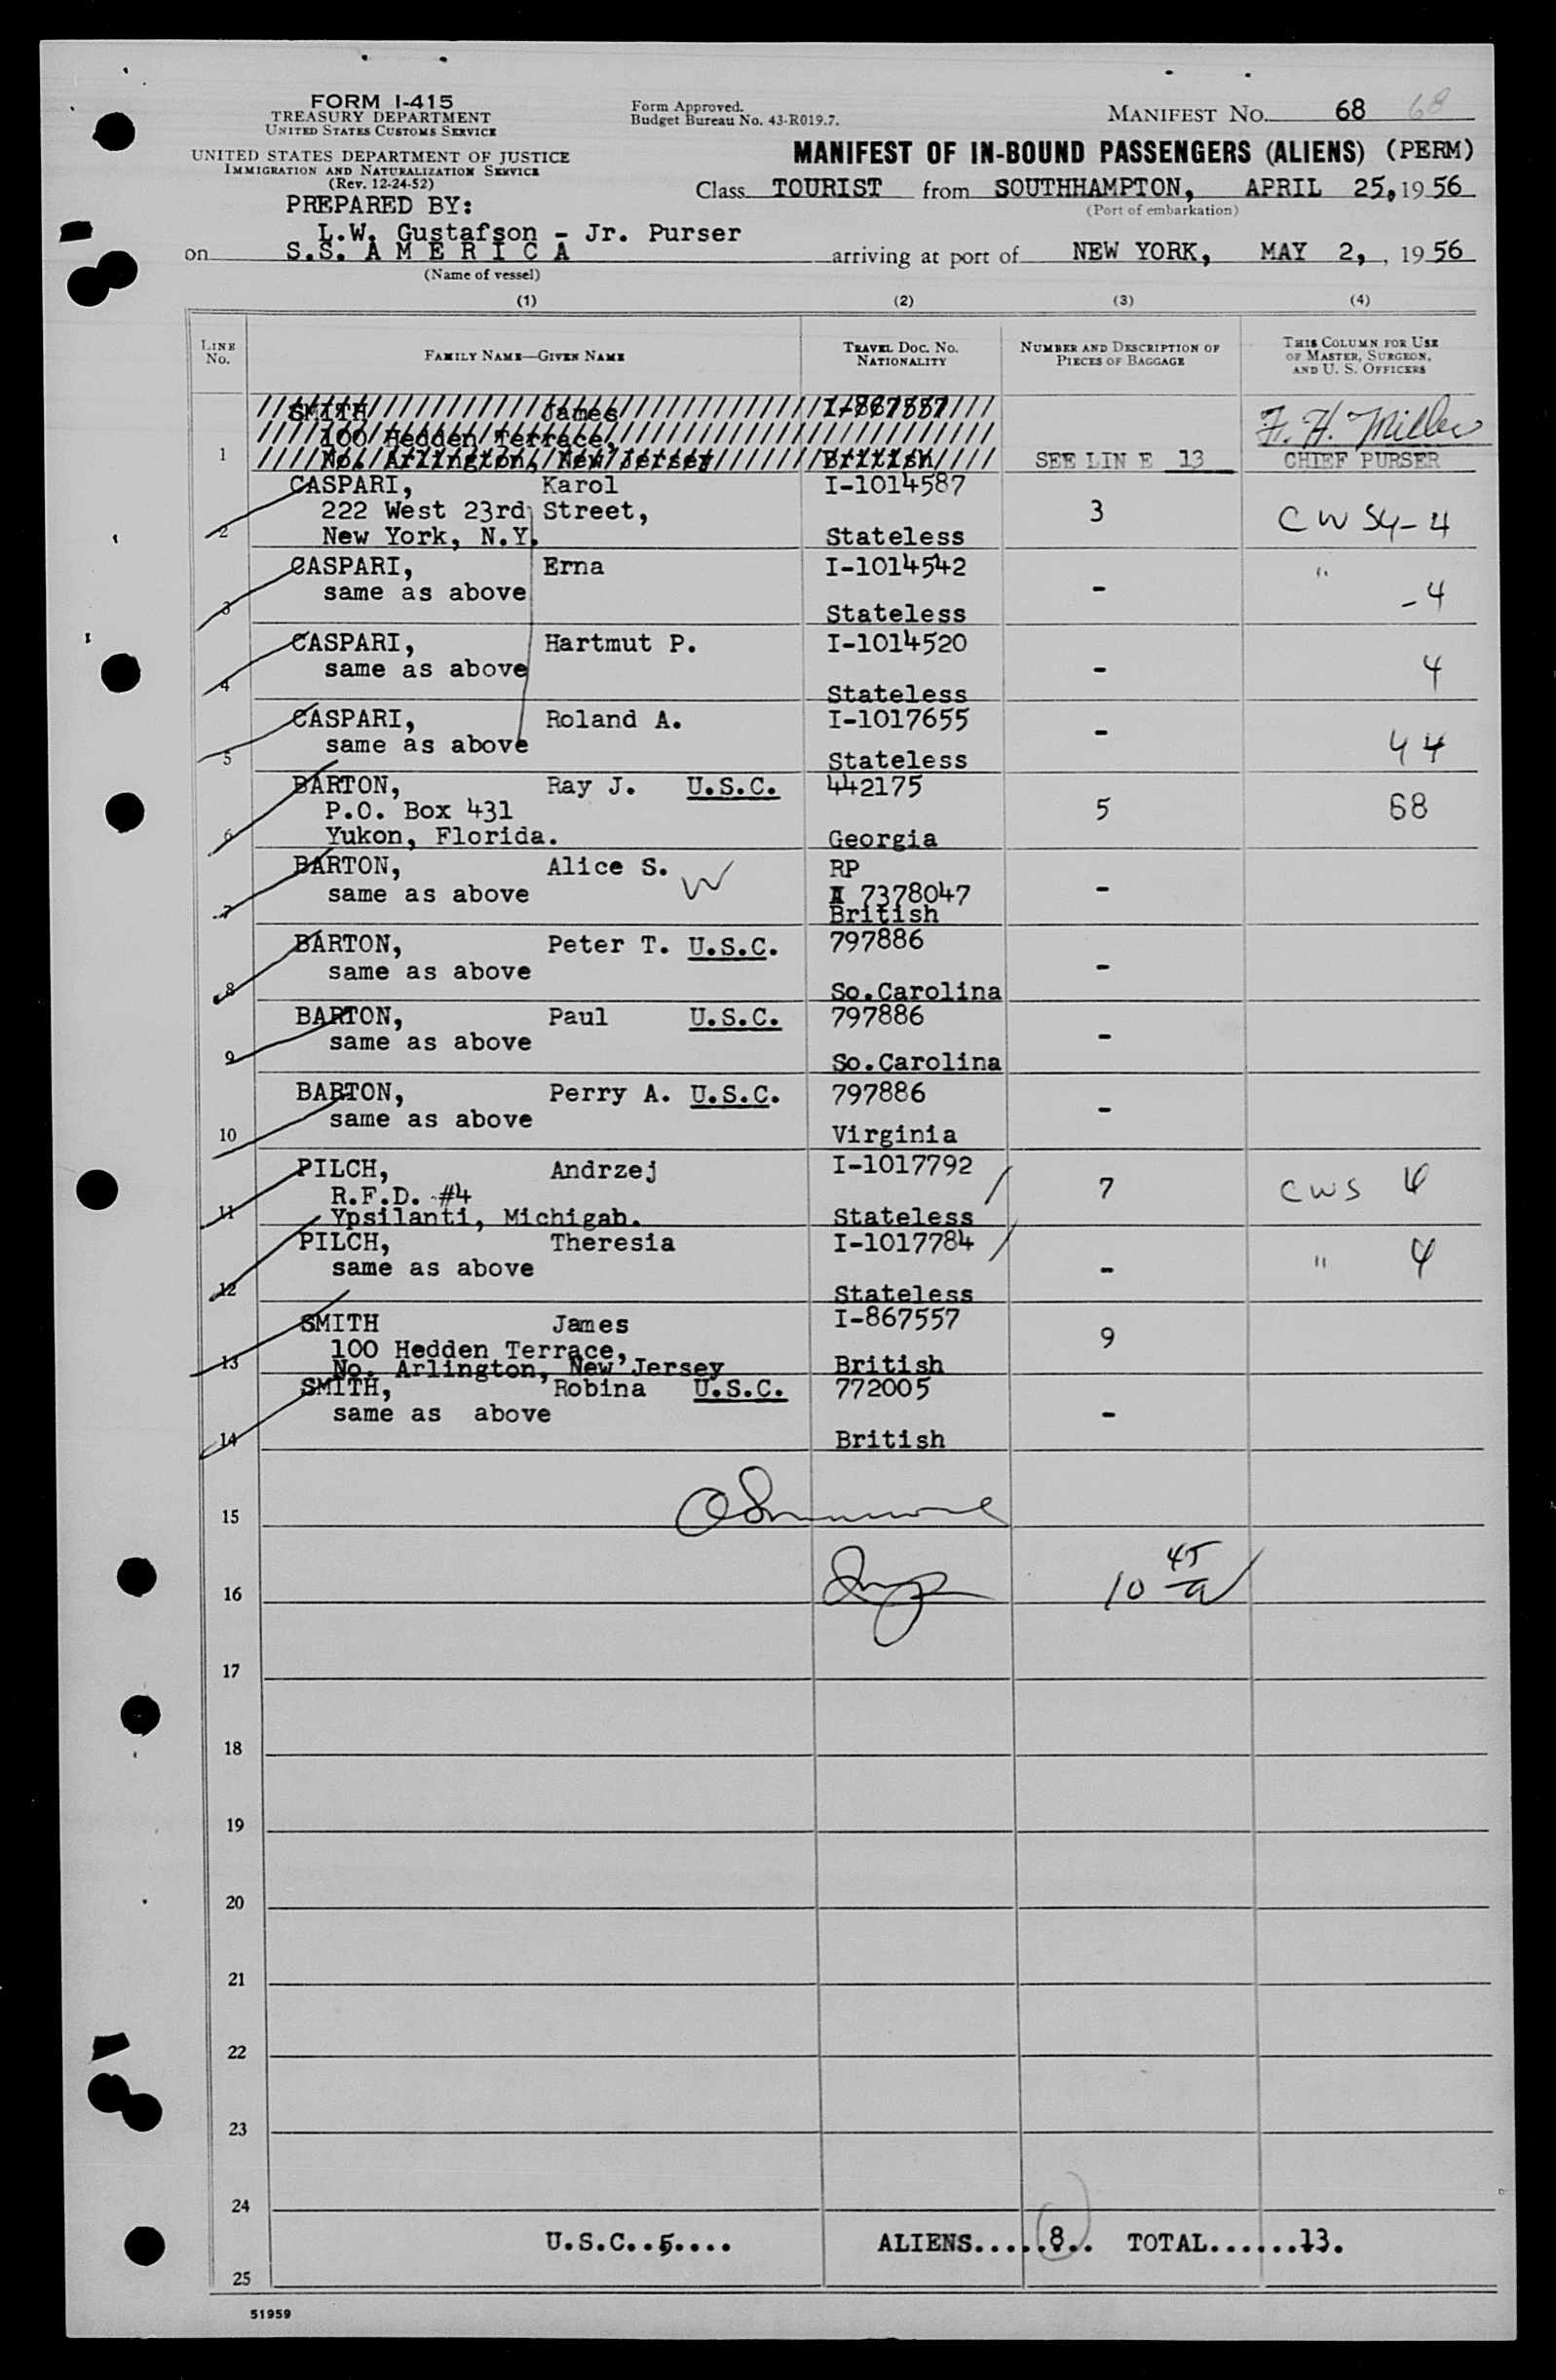 FORM I-415
TREASURY DEPARTMENT
UNITED STATES CUSTOMS SERVICE
UNITED STATES DEPARTMENT OF JUSTICE
IMMIGRATION AND NATURALIZATION SERVICE
(Rev. 12-24-52)
Form Approved.
Budget Bureau No. 43-R019.7.
MANIFEST NO. 68 68
MANIFEST OF IN-BOUND PASSENGERS (ALIENS) (PERM)
Class TOURIST from SOUTHHAMPTON, APRIL 25, 1956
(Port of embarkation)
PREPARED BY:
L.W. Gustafson - Jr. Purser
on S.S. A M E R I C A arriving at port of NEW YORK, MAY 2, , 1956
(Name of vessel)
(1) (2) (3) (4)
LINE No. FAMILY NAME—GIVEN NAME TRAVEL DOC. NO. NATIONALITY NUMBER AND DESCRIPTION OF PIECES OF BAGGAGE THIS COLUMN FOR USE OF MASTER, SURGEON, AND U. S. OFFICERS
SMITH James I-867557
100 Hedden Terrace, F. H. Miller
1 No. Arlington, New Jersey British SEE LIN E 13 CHIEF PURSER
CASPARI, Karol I-1014587
222 West 23rd Street, 3 CW S4-4
2 New York, N.Y. Stateless
CASPARI, Erna I-1014542 "
same as above - -4
3 Stateless
CASPARI, Hartmut P. I-1014520
same as above - 4
4 Stateless
CASPARI, Roland A. I-1017655
same as above - 4 4
5 Stateless
BARTON, Ray J. U.S.C. 442175
P.O. Box 431 5 68
6 Yukon, Florida. Georgia
BARTON, Alice S. W RP
same as above 7378047 -
7 British
BARTON, Peter T. U.S.C. 797886
same as above -
8 So.Carolina
BARTON, Paul U.S.C. 797886
same as above -
9 So.Carolina
BARTON, Perry A. U.S.C. 797886
same as above -
10 Virginia
PILCH, Andrzej I-1017792
R.F.D. #4 7 CWS 4
11 Ypsilanti, Michigab. Stateless
PILCH, Theresia I-1017784
same as above - " 4
12 Stateless
SMITH James I-867557
100 Hedden Terrace, 9
13 No. Arlington, New Jersey British
SMITH, Robina U.S.C. 772005
same as above -
14 British
15
16 10 45/a
17
18
19
20
21
22
23
24
U.S.C..5.... ALIENS.....8.. TOTAL.......13.
25
51959